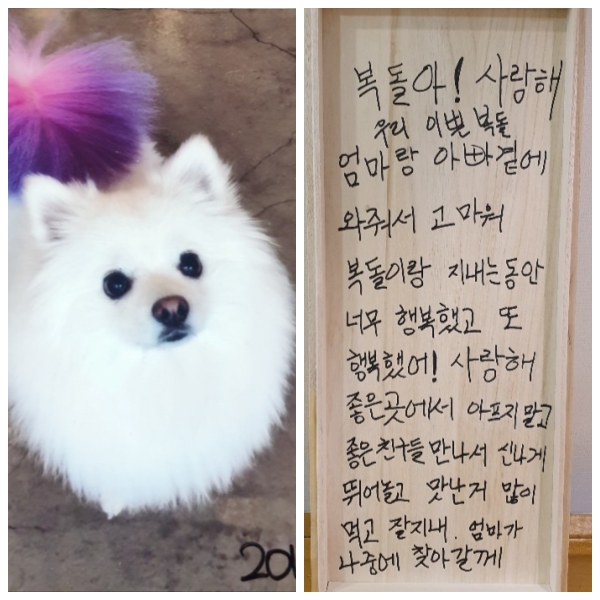 201
복돌아! 사랑해
우리 이쁜 복돌
엄마랑 아빠곁에
와줘서 고마워
복돌이랑 지내는동안
너무 행복했고 또
행복했어! 사랑해
좋은곳에서 아프지말고
좋은친구들만나서 신나게
뛰어놀고 맛난거 많이
먹고 잘지내. 엄마가
나중에 찾아갈께